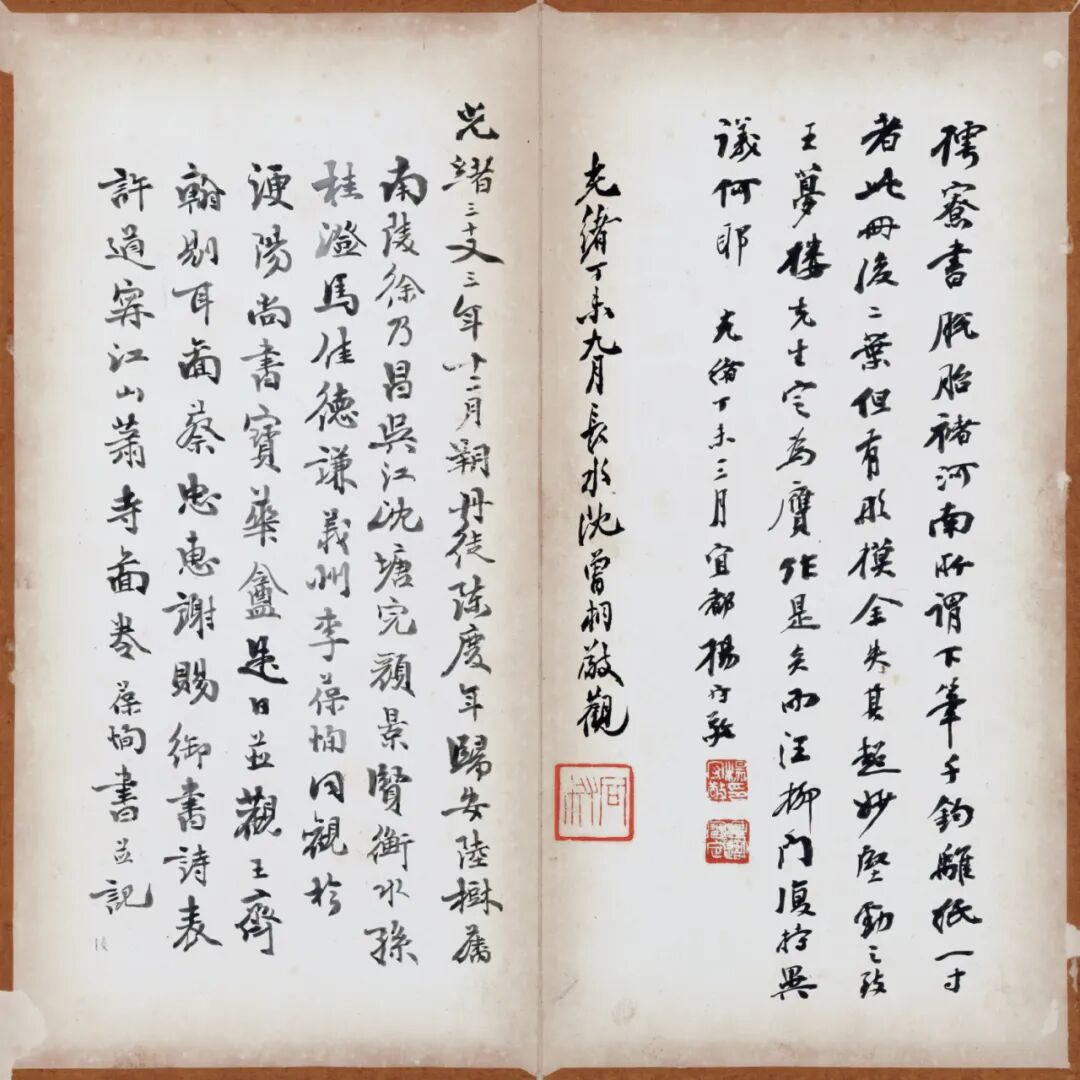 樗寮書脫胎褚河南所謂下筆千鈞離紙一寸
者此册後二葉但有形模全失其超妙堅勁之致
王夢樓先生定為贗作是矣而汪柳門復持異
議何耶　光緒丁未三月宜都楊守敬
楊印守敬
光緒丁未九月長水沈曾桐敬觀
光緒三十又三年十二月朔丹徒陳慶年歸安陸樹藩
南陵徐乃昌吳江沈塘完顏景賢衡水孫
桂澂馬佳德謙義州李葆恂同觀於
浭陽尚書寶華盦是日並觀王齊
翰剔耳圖蔡忠惠謝賜御書詩表
許道寧江山蕭寺圖卷葆恂書並記